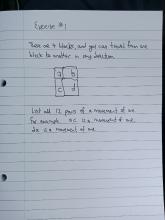 Exercise #1
There are 4 blocks, and you can travel from one
block to another in any direction
a b
c d
List all 12 pairs of a movement of one.
For example ac is a movement of one.
da is a movement of one.